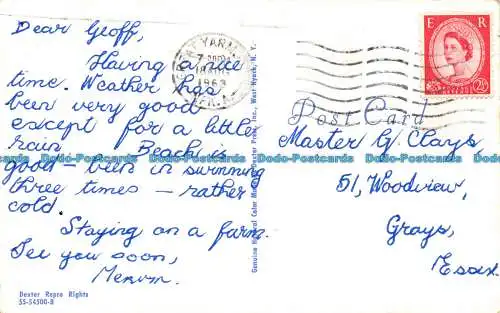 Dear Geoff,
Having a nice
time. Weather has
been very good
except for a little
rain Beach is
good – been in swimming
three times – rather
cold.
Staying on a farm.
See you soon,
Mervyn.
Dexter Repro Rights
SS-54500-B
GREAT YARMOUTH
1963
Dexter Press, Inc., West Nyack, N. Y.
E R
2½
Post Card
Master G. Clays,
51, Woodview,
Grays,
Essex.
Dodo-Postcards Dodo-Postcards Dodo-Postcards Dodo-Postcards